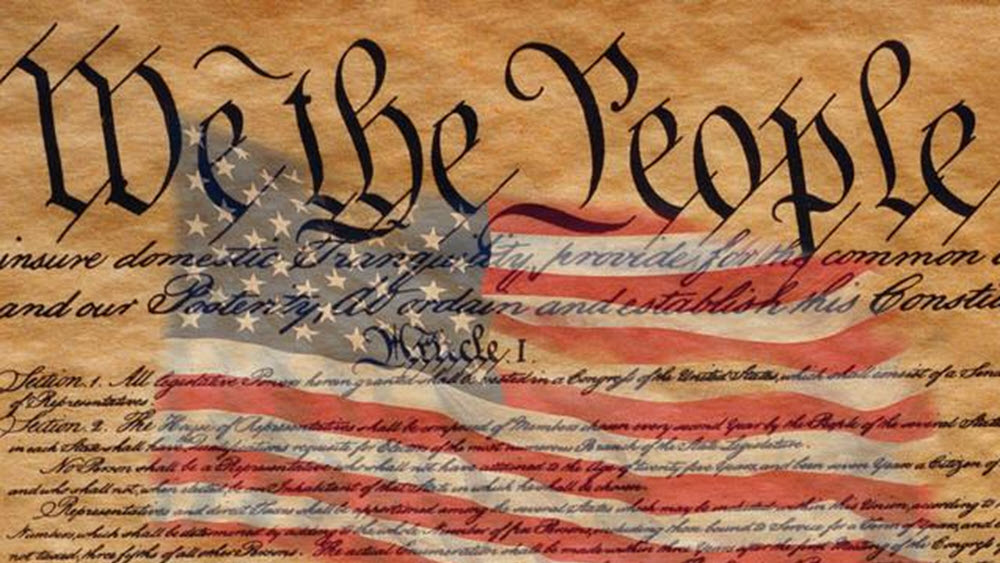 We the People
insure domestic Tranquility, provide for the common
and our Posterity, do ordain and establish this Constit
Article. I.
Section. 1. All legislative Powers herein granted shall be vested in a Congress of the United States, which shall consist of a Sena
of Representatives.
Section. 2. The House of Representatives shall be composed of Members chosen every second Year by the People of the several States
in each State shall have the Qualifications requisite for Electors of the most numerous Branch of the State Legislature.
No Person shall be a Representative who shall not have attained to the Age of twenty five Years, and been seven Years a Citizen of
and who shall not, when elected, be an Inhabitant of that State in which he shall be chosen.
Representatives and direct Taxes shall be apportioned among the several States which may be included within this Union, according to
Numbers, which shall be determined by adding to the whole Number of free Persons, including those bound to Service for a Term of Years, and
not taxed, three fifths of all other Persons. The actual Enumeration shall be made within three Years after the first Meeting of the Congress